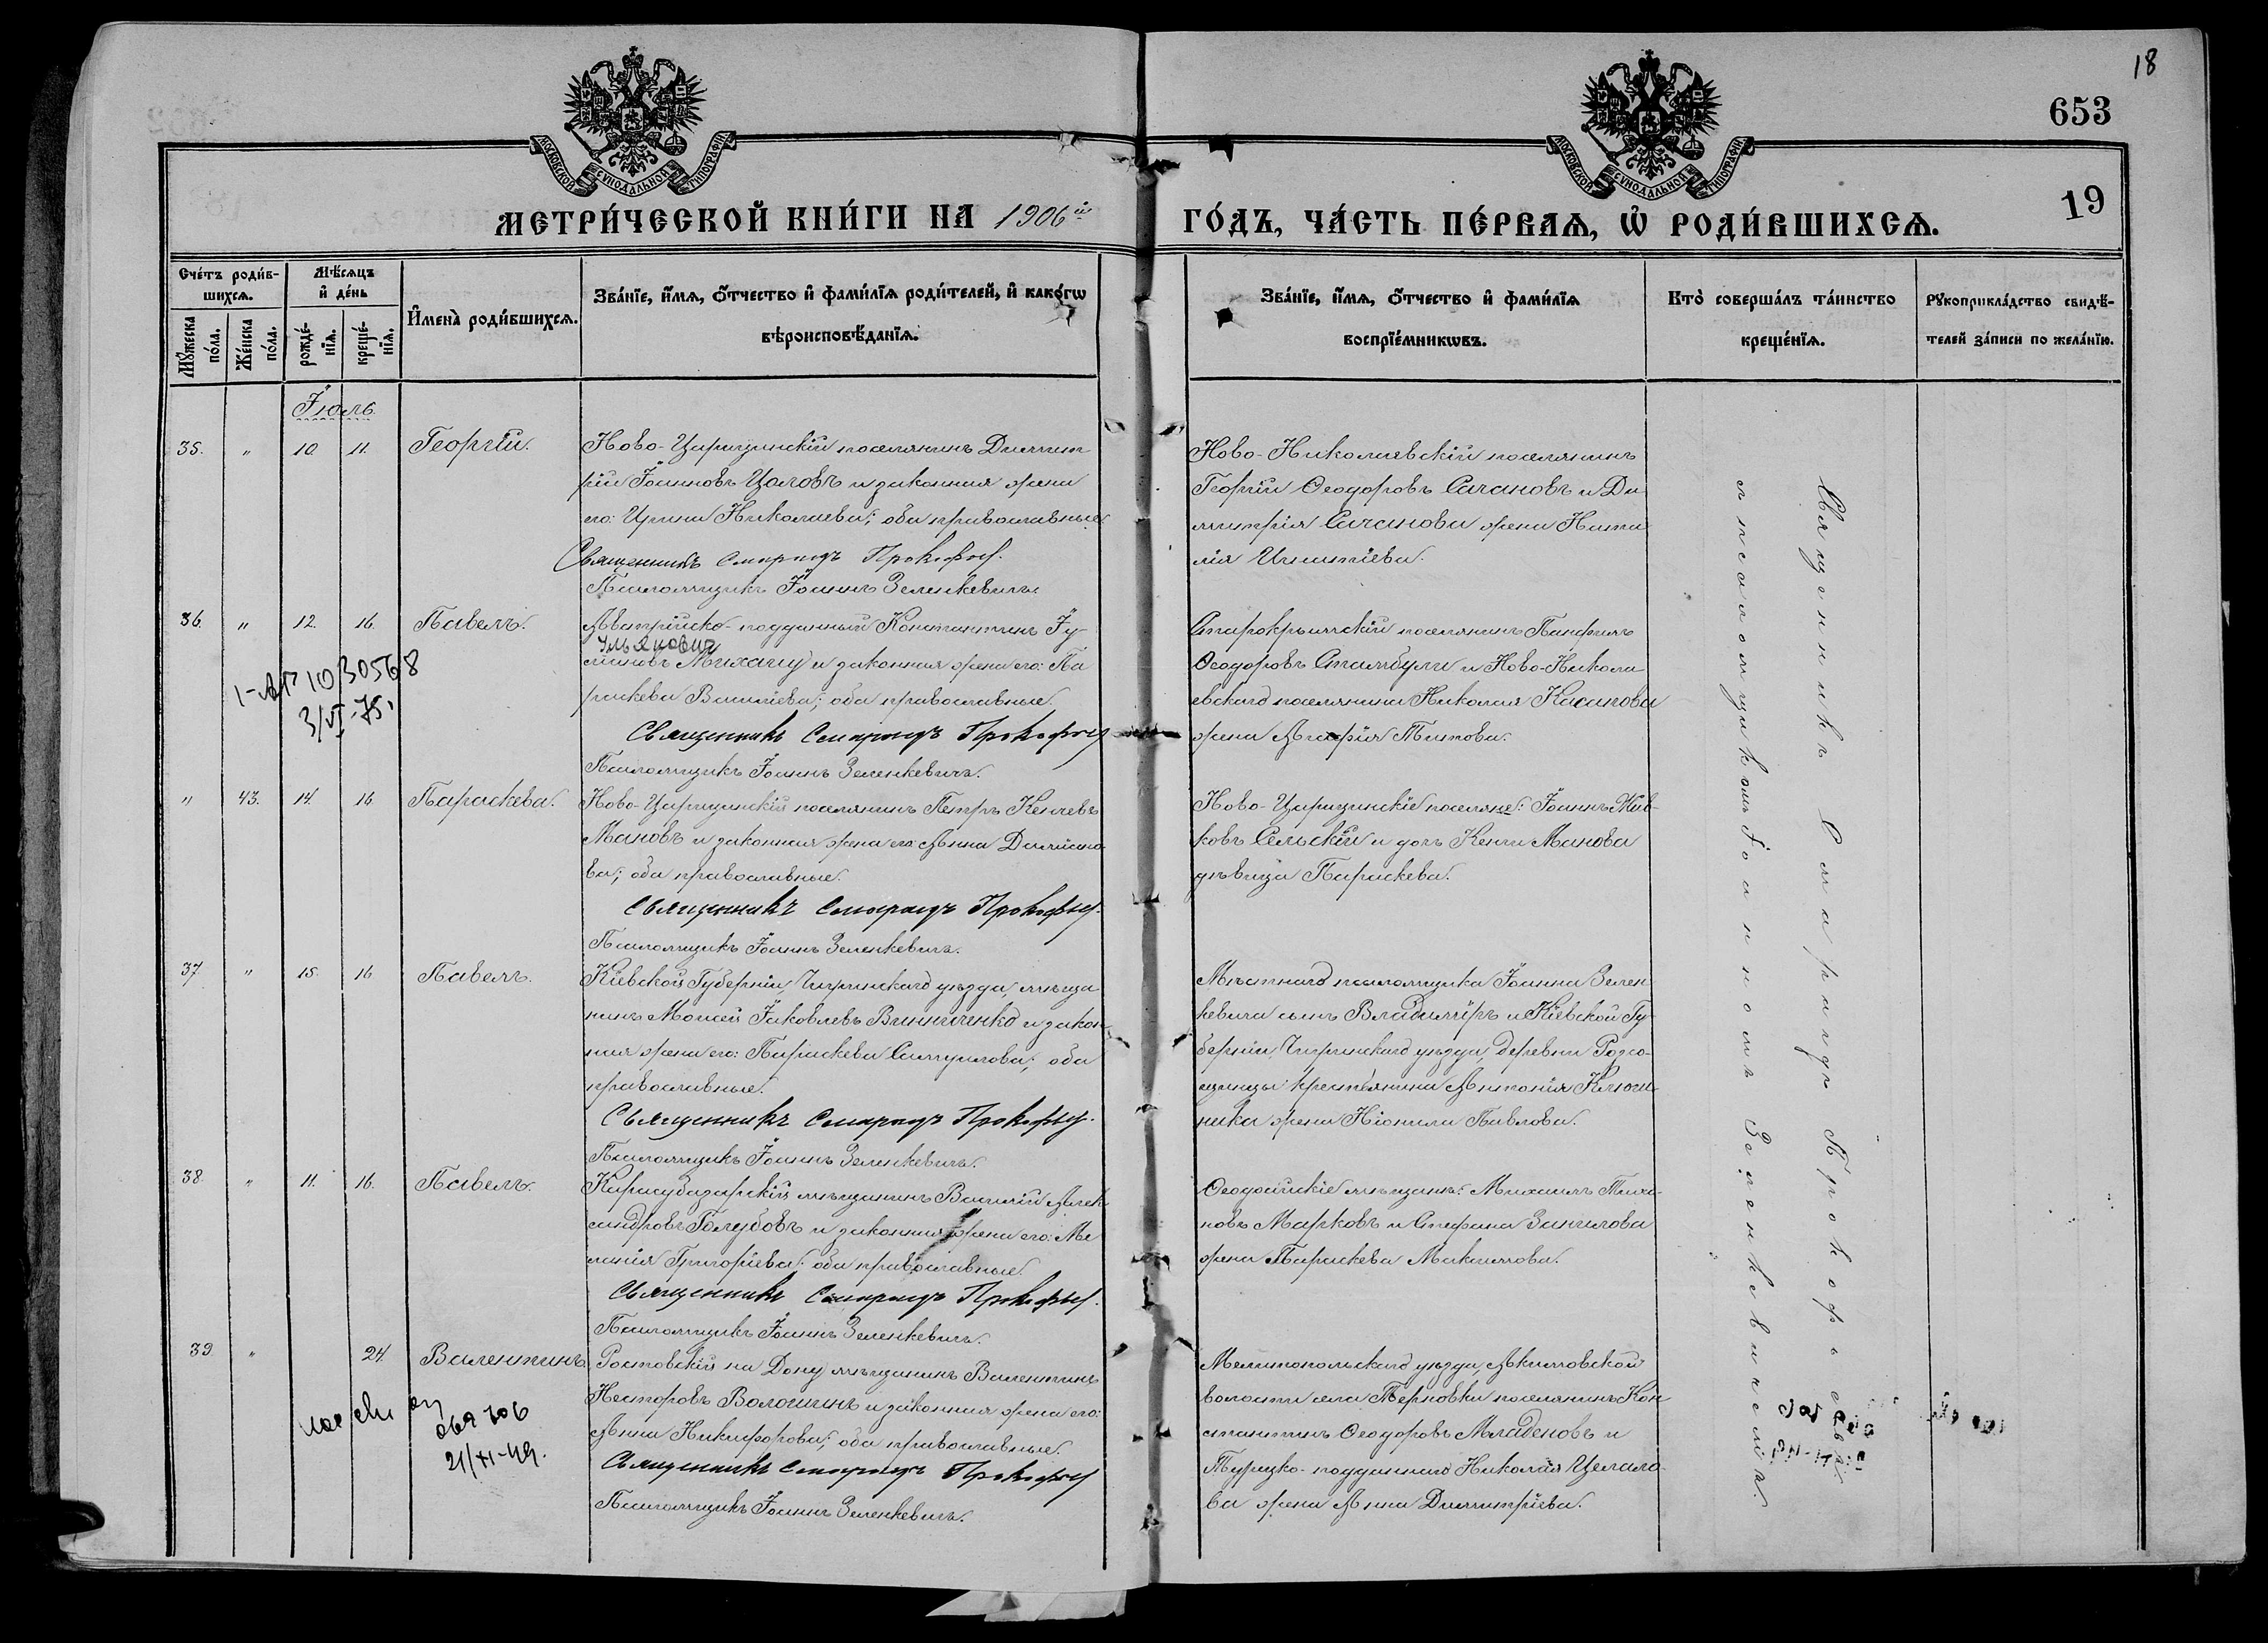 18
653
19
МОСКОВСКОЙ СѴНОДАЛЬНОЙ ТИПОГРАФІИ
МОСКОВСКОЙ СѴНОДАЛЬНОЙ ТИПОГРАФІИ
МЕТРИ́ЧЕСКОЙ КНИ́ГИ НА 1906й ГО́ДЪ, ЧА́СТЬ ПЕ́РВАѦ, Ѡ҆ РОДИ́ВШИХСѦ.
Сче́тъ роди́в-
шихсѧ.
Мꙋ́жеска
по́ла.
Же́нска
по́ла.
Мѣ́сѧцъ
и҆ де́нь
рожде́-
нїѧ.
креще́-
нїѧ.
И҆мена̀ роди́вшихсѧ.
Зва́нїе, и҆́мѧ, ѻ҆́тчество и҆ фами́лїѧ роди́телей, и҆ како́гѡ
вѣроисповѣ́данїѧ.
Зва́нїе, и҆́мѧ, ѻ҆́тчество и҆ фами́лїѧ
воспрїе́мникѡвъ.
Кто̀ соверша́лъ та́инство
креще́нїѧ.
Рꙋкоприкла́дство свидѣ́-
телей за́писи по жела́нїю.
Іюль.
35. " 10. 11. Георгій.
Ново-Царицинскій поселянинъ Димит
рій Іоанновъ Цоловъ и законная жена
его: Ирина Николаева; оба православные.
Священникъ Смарагдъ Прокофьев.
Псаломщикъ Іоаннъ Зеленкевичъ.
Ново-Николаевскій поселянинъ
Георгій Ѳеодоровъ Сачановъ и Ди
митрія Сачанова жена Ната
лія Игнатіева.
36. " 12. 16. Павелъ.
Австрійско-подданный Константинъ Іу-
Ульянович
ліановъ Михачу и законная жена его: Па
раскева Васильева; оба православные.
Священникъ Смарагдъ Прокофьев
Псаломщикъ Іоаннъ Зеленкевичъ.
1-АР 1030568
3/VI-75.
Старокрымскій поселянинъ Панфилъ
Ѳеодоровъ Стамбули и Ново-Никола
евскаго поселянина Николая Касапова
жена Агафія Титова.
" 43. 14. 16. Параскева.
Ново-Царицинскій поселянинъ Петръ Кенчевъ
Мановъ и законная жена его Анна Даміано
ва; оба православные.
Священникъ Смарагдъ Прокофьев.
Псаломщикъ Іоаннъ Зеленкевичъ.
Ново-Царицинскіе поселяне: Іоаннъ Жив-
ковъ Сельскій и дочь Кенчи Манова
дѣвица Параскева.
37. " 15. 16. Павелъ.
Кіевской Губерніи, Чигринскаго уѣзда, мѣща
нинъ Моисей Іаковлевъ Винниченко и закон
ная жена его: Параскева Самуилова; оба
православные.
Священникъ Смарагдъ Прокофьев.
Псаломщикъ Іоаннъ Зеленкевичъ.
Мѣстнаго псаломщика Іоанна Зелен
кевича сынъ Владиміръ и Кіевской Гу
берніи, Чигринскаго уѣзда, деревни
крестьянина Антонія Ключ
ника жена Неонила Павлова.
38. " 11. 16. Павелъ.
Карасубазарскій мѣщанинъ Василій Алек
сандровъ Голубовъ и законная жена его: Ме
ланія Григоріева; оба православные.
Священникъ Смарагдъ Прокофьев.
Псаломщикъ Іоаннъ Зеленкевичъ.
Ѳеодосійскіе мѣщане: Михаилъ Тихо
новъ Марковъ и Стефана Зангилова
жена Параскева Максимова.
39. " 24. Валентинъ.
Ростовскій на Дону мѣщанинъ Валентинъ
Несторовъ Волошинъ и законная жена его:
Анна Никифорова; оба православные.
Священникъ Смарагдъ Прокофьев
Псаломщикъ Іоаннъ Зеленкевичъ.
21/XI-49.
Мелитопольскаго уѣзда, Акимовской
волости села Терновки поселянинъ Кон
стантинъ Ѳеодоровъ Младеновъ и
Турецко-подданнаго Николая
жена Анна Димитріева.
Священникъ Смарагдъ Прокофьевъ
съ псаломщикомъ Іоанномъ Зеленкевичемъ.